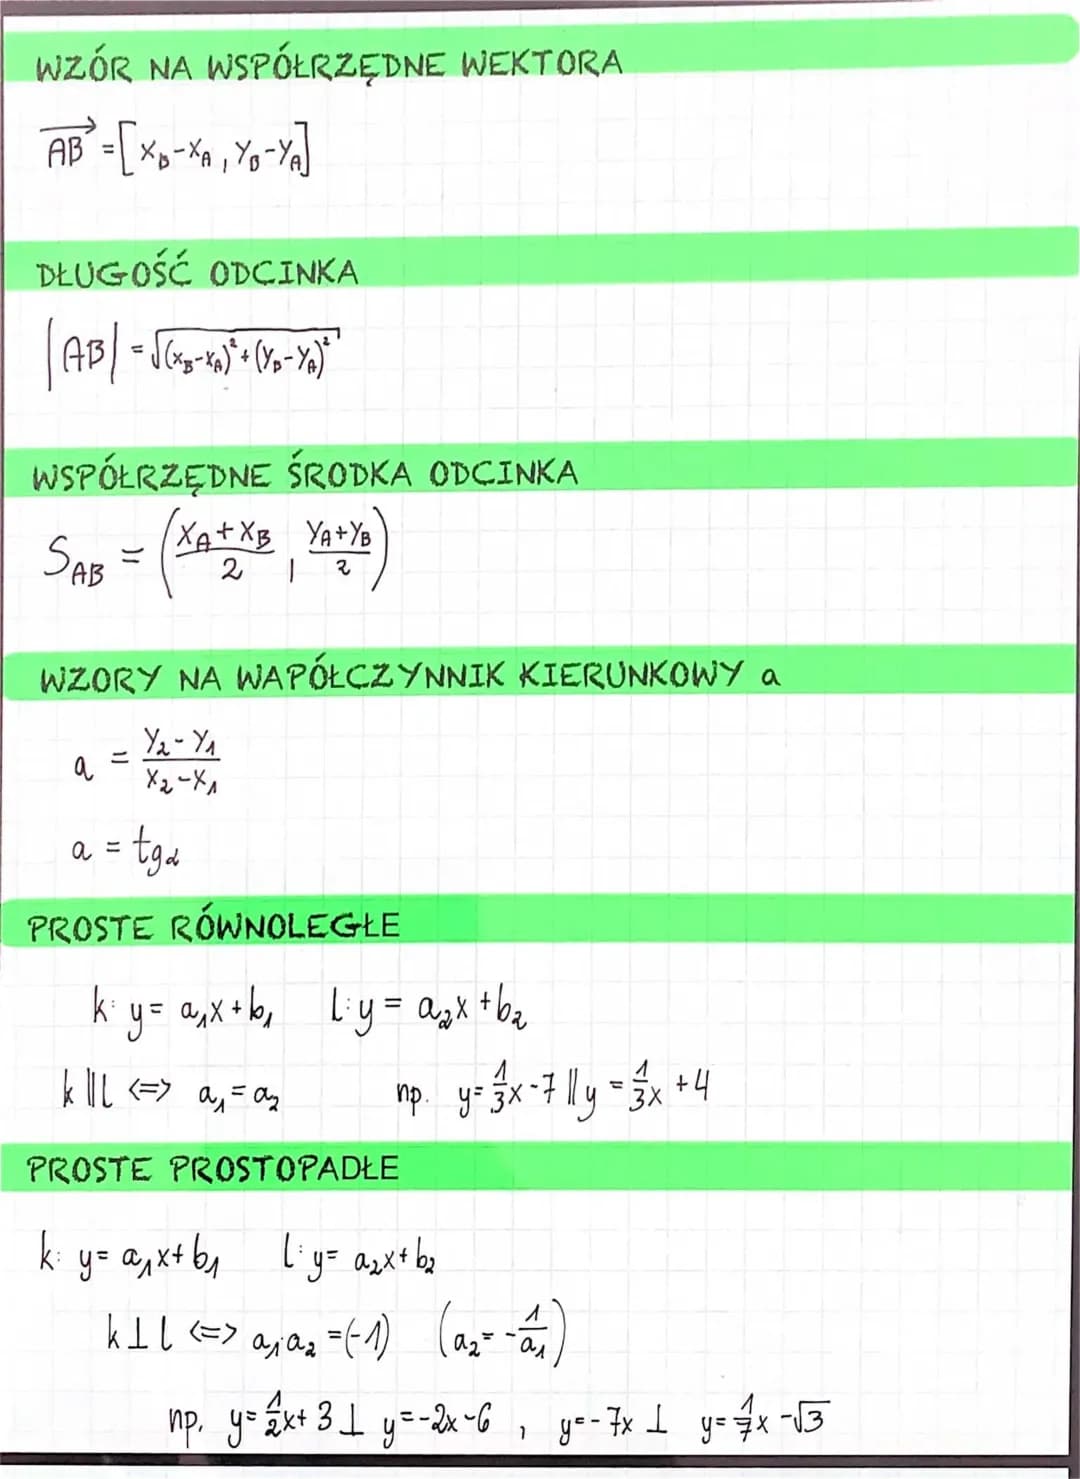 WZÓR NA WSPÓŁRZĘDNE WEKTORA
AB→ = [x_B-x_A, y_B-y_A]
DŁUGOŚĆ ODCINKA
|AB| = √((x_B-x_A)² + (y_B-y_A)²)
WSPÓŁRZĘDNE ŚRODKA ODCINKA
S_AB = ((x_A+x_B)/2, (y_A+y_B)/2)
WZORY NA WAPÓŁCZYNNIK KIERUNKOWY a
a = (y₂-y₁)/(x₂-x₁)
a = tgα
PROSTE RÓWNOLEGŁE
k: y= a₁x+b₁ l: y= a₂x+b₂
k || l <=> a₁=a₂ np. y=1/3x-7 || y=1/3x+4
PROSTE PROSTOPADŁE
k: y= a₁x+b₁ l: y= a₂x+b₂
k ⊥ l <=> a₁·a₂ =(-1) (a₂= -1/a₁)
np. y=1/2x+3 ⊥ y=-2x-6, y=-7x ⊥ y=1/7x-√3